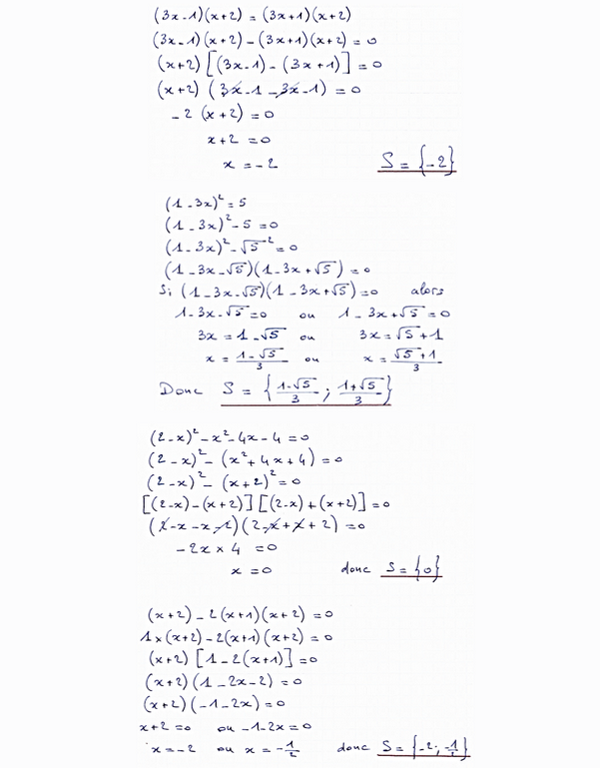 (3x-1)(x+2) = (3x+1)(x+2)
(3x-1)(x+2) - (3x+1)(x+2) = 0
(x+2) [(3x-1) - (3x+1)] = 0
(x+2) (3x-1-3x-1) = 0
-2 (x+2) = 0
x+2 = 0
x = -2 S = {-2}
(1-3x)² = 5
(1-3x)² - 5 = 0
(1-3x)² - √5² = 0
(1-3x-√5)(1-3x+√5) = 0
Si (1-3x-√5)(1-3x+√5) = 0 alors
1-3x-√5 = 0 ou 1-3x+√5 = 0
3x = 1-√5 ou 3x = √5+1
x = (1-√5)/3 ou x = (√5+1)/3
Donc S = {(1-√5)/3 ; (1+√5)/3}
(2-x)² - x² - 4x - 4 = 0
(2-x)² - (x²+4x+4) = 0
(2-x)² - (x+2)² = 0
[(2-x) - (x+2)] [(2-x) + (x+2)] = 0
(2-x-x-2)(2-x+x+2) = 0
-2x × 4 = 0
x = 0 donc S = {0}
(x+2) - 2(x+1)(x+2) = 0
1×(x+2) - 2(x+1)(x+2) = 0
(x+2) [1-2(x+1)] = 0
(x+2) (1-2x-2) = 0
(x+2) (-1-2x) = 0
x+2 = 0 ou -1-2x = 0
x = -2 ou x = -1/2 donc S = {-2; -1/2}